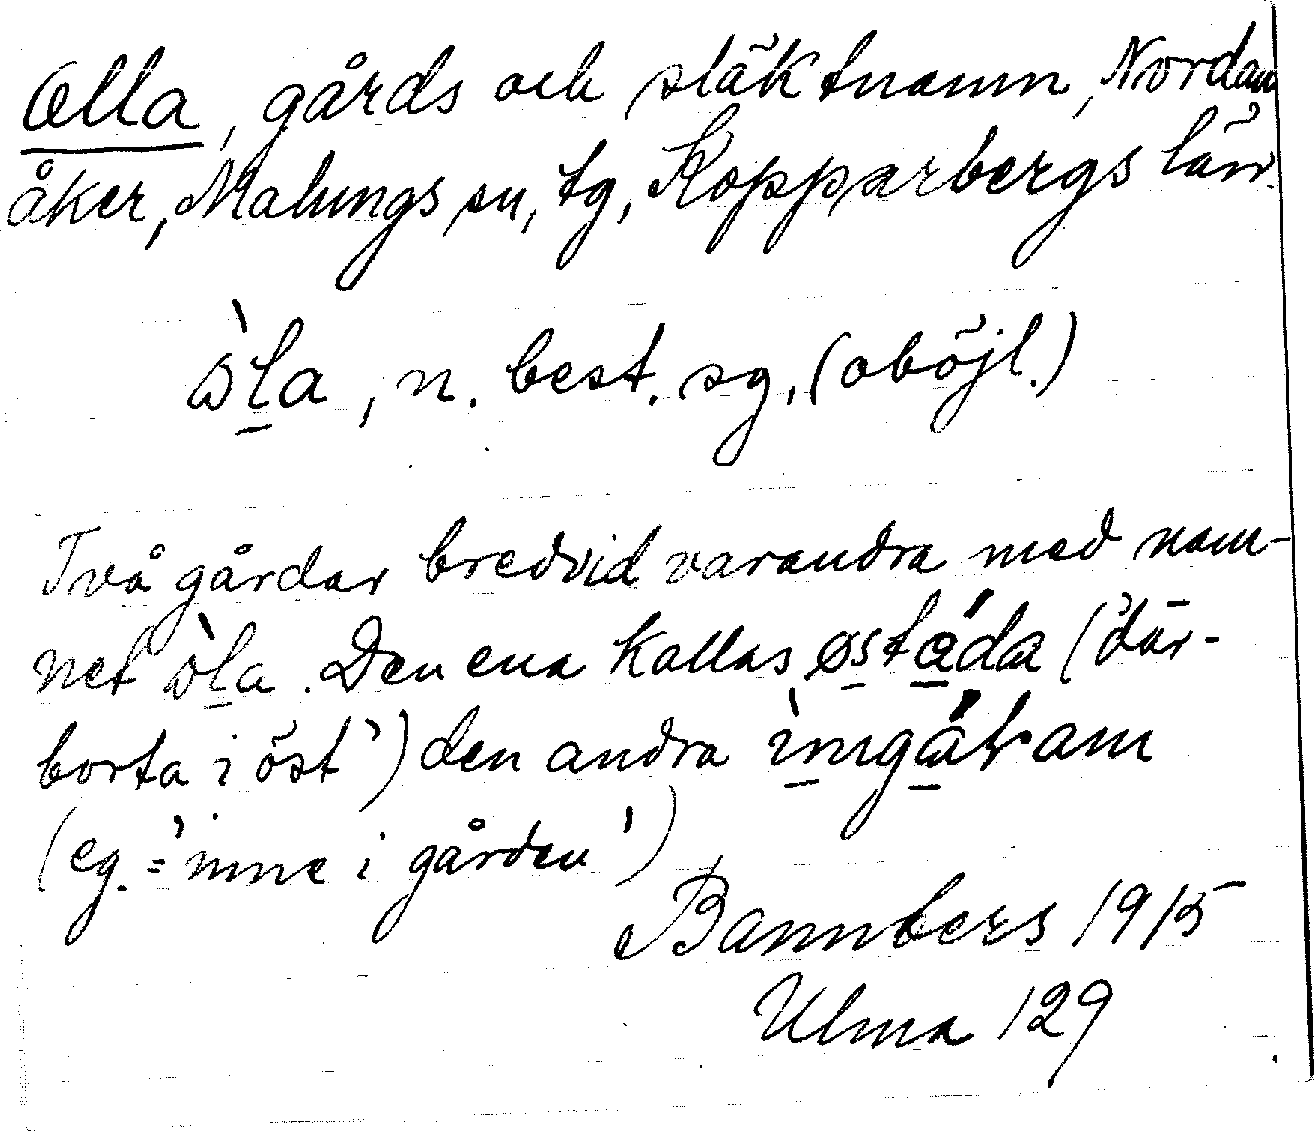 Olla, gårds och släktnamn, Nordan
åker, Malungs sn, tg, Kopparbergs län.
ɷ̀l̠a, n. best. sg. (oböjl.)
Två gårdar bredvid varandra med nam-
net ɷ̀l̠a. Den ena kallas øs̠tá̠da ('där-
borta i öst') den andra ìn̠ngǻ̠ɽam
(eg. = 'inne i gården')
Bannbers 1915
Ulma 129